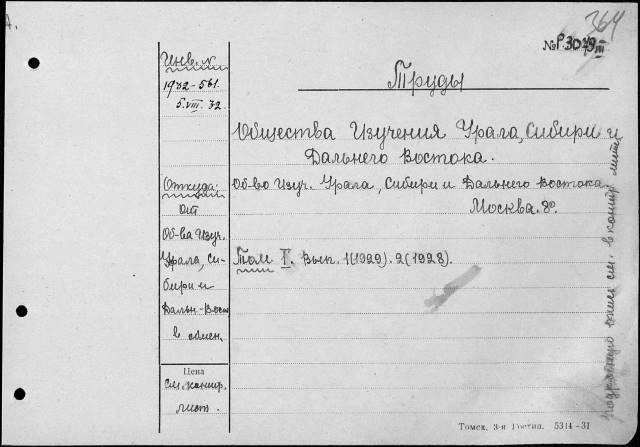 А.
364
№Р.3079/III
Инв. №
1932-561.
5.VIII.32.
Труды
Общества Изучения Урала, Сибири и
Дальнего Востока.
Откуда:
от
Об-ва Изуч.
Урала, Си-
бири и
Дальн-Вост
в обмен.
Об-во Изуч. Урала, Сибири и Дальнего Востока
Москва. 8º.
Том I. Вып. 1(1929). 2(1928).
Цена
см. контр.
лист.
подробную опись см. в контр. листе
Томск. 3-я Гостип. 5314-31